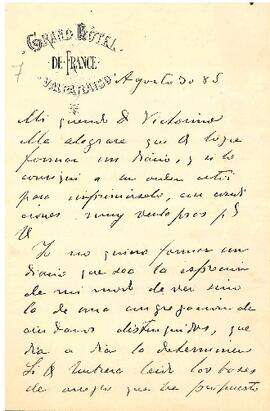 GRAND HÔTEL
DE FRANCE
VALPARAISO
7
Agosto 30 85
Mi querido D Victorino
Me alegrare que U logre
formar un diario, y si lo
consigue a su orden
para imprimirselo, en condi
ciones muy ventajosas p^a
U
Yo no quiero formar un
diario que sea la espresion
de mi modo de ver sino
la de una congregacion de
ciudadanos distinguidos, que
dia a dia lo determinen
Si U hubiera leido las bases
de arreglo que he propuesto